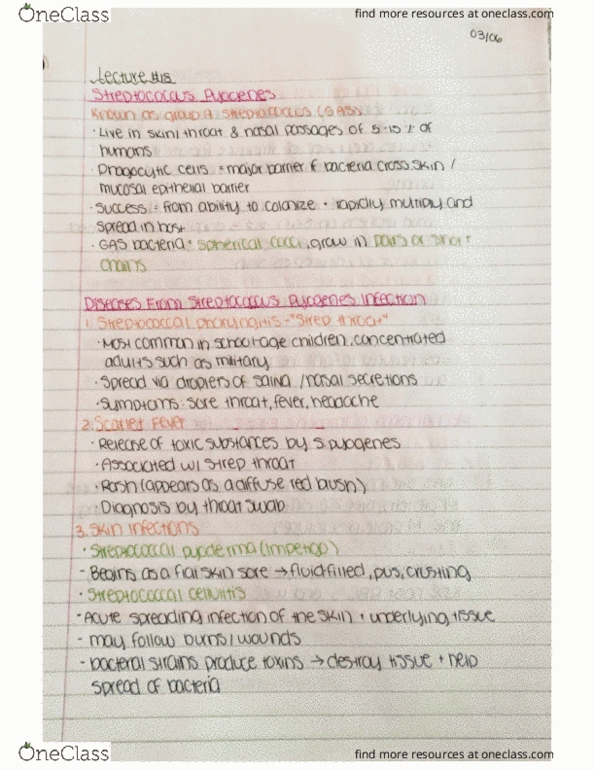 OneClass
find more resources at oneclass.com
03/06
Lecture #15
Streptococcus Pyogenes
Known as group A streptococcus (GAS)
· Live in skin/throat & nasal passages of 5-15% of
humans
· Phagocytic cells = major barrier f bacteria cross skin /
mucosal epithelial barrier
· Success = from ability to colonize + rapidly multiply and
spread in host
· GAS bacteria = spherical cocci, grow in pairs or short
chains
Diseases From Streptococcus Pyogenes Infection
1. Streptococcal pharyngitis - "Strep throat"
· Most common in school age children, concentrated
adults such as military
· Spread via droplets of saliva /nasal secretions
· Symptoms: sore throat, fever, headache
2. Scarlet Fever
· Release of toxic substances by S. pyogenes
· Associated w/ strep throat
· Rash (appears as a diffuse red blush)
· Diagnosis by throat swab
3. Skin Infections
· Streptococcal pyoderma (Impetigo)
- Begins as a flat skin sore → fluid filled, pus, crusting
· Streptococcal cellulitis
- Acute spreading infection of the skin + underlying tissue
- may follow burns/wounds
- bacteral strains produce toxins → destroy tissue + help
spread of bacteria
OneClass
find more resources at oneclass.com